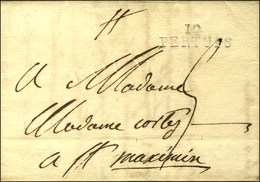 12
PERTUIS
a Madame
Madame cortez
a St maximin